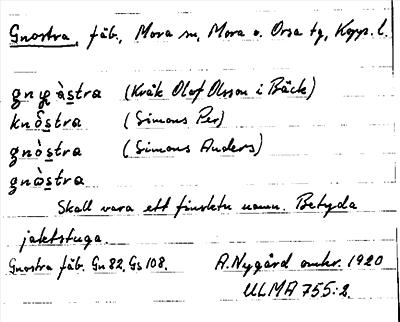 Gnostra, fäb., Mora sn, Mora o. Orsa tg, Kopp. l.
gnỿàstra (Kråk Olof Olsson i Bäck)
knòstra (Simons Per)
gnòstra (Simons Anders)
gnàstra
Skall vara ett finskt namn. Betyda
jaktstuga.
Gnostra fäb. Gn 82, Gs 108. A. Nygård omkr. 1920
ULMA 755:2.